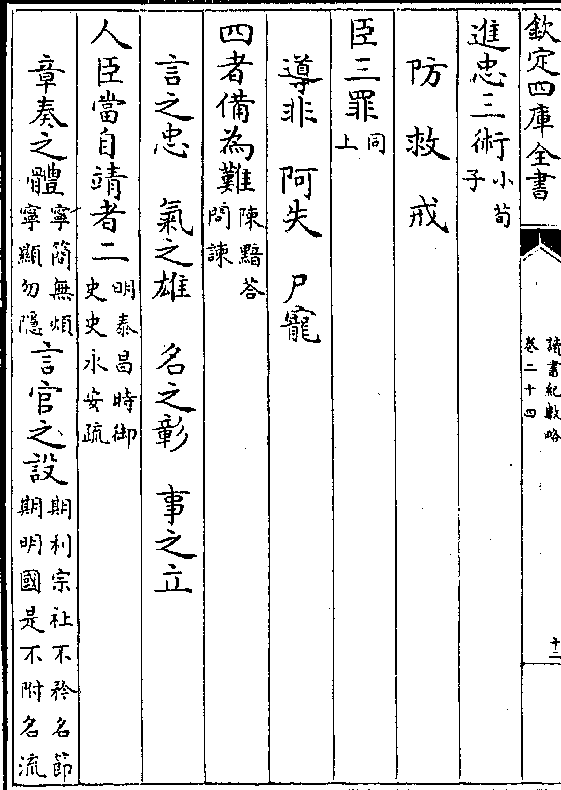 欽定四庫全書
讀書紀數略
卷二十四
十二
進忠三術小荀
子
防 救 戒
臣三罪同
上
導非 阿失 尸寵
四者備為難陳黯荅
問諫
言之忠 氣之雄 名之彰 事之立
人臣當自靖者二明泰昌時御
史史永安疏
章奏之體寧簡無煩
寧顯勿隱言官之設期利宗社不矜名節
期明國是不附名流